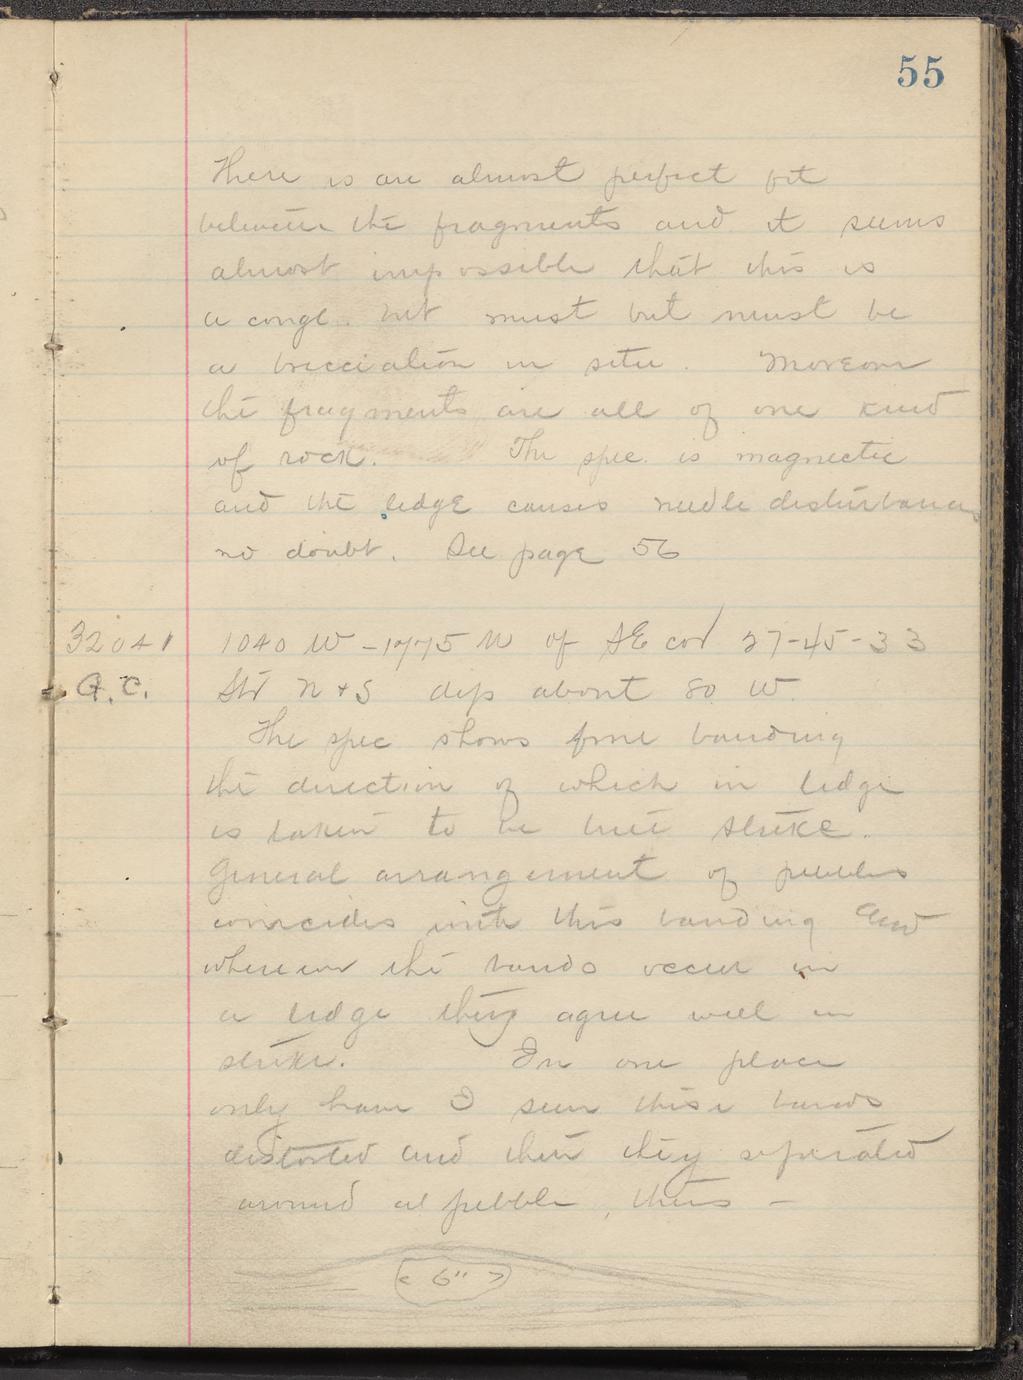 55
There is an almost perfect fit
between the fragments and it seems
almost impossible that this is
a congl. but must but must be
a brecciation in situ. Moreover
the fragments are all of one kind
of rock. The spec. is magnectic
and the ledge causes needle disturbances
no doubt. See page 56
32041 1040 W - 1775 N of SE cor 27-45-33
G.C. Str N+S dip about 80 W
The spec shows fine banding
the direction of which in ledge
is taken to be true strike.
General arrangement of pebbles
coincides with this banding and
wherever the bands occur in
a ledge they agree well in
strike. In one place
only have I seen these bands
distorted and then they separated
around a pebble, thus -
< 6" >